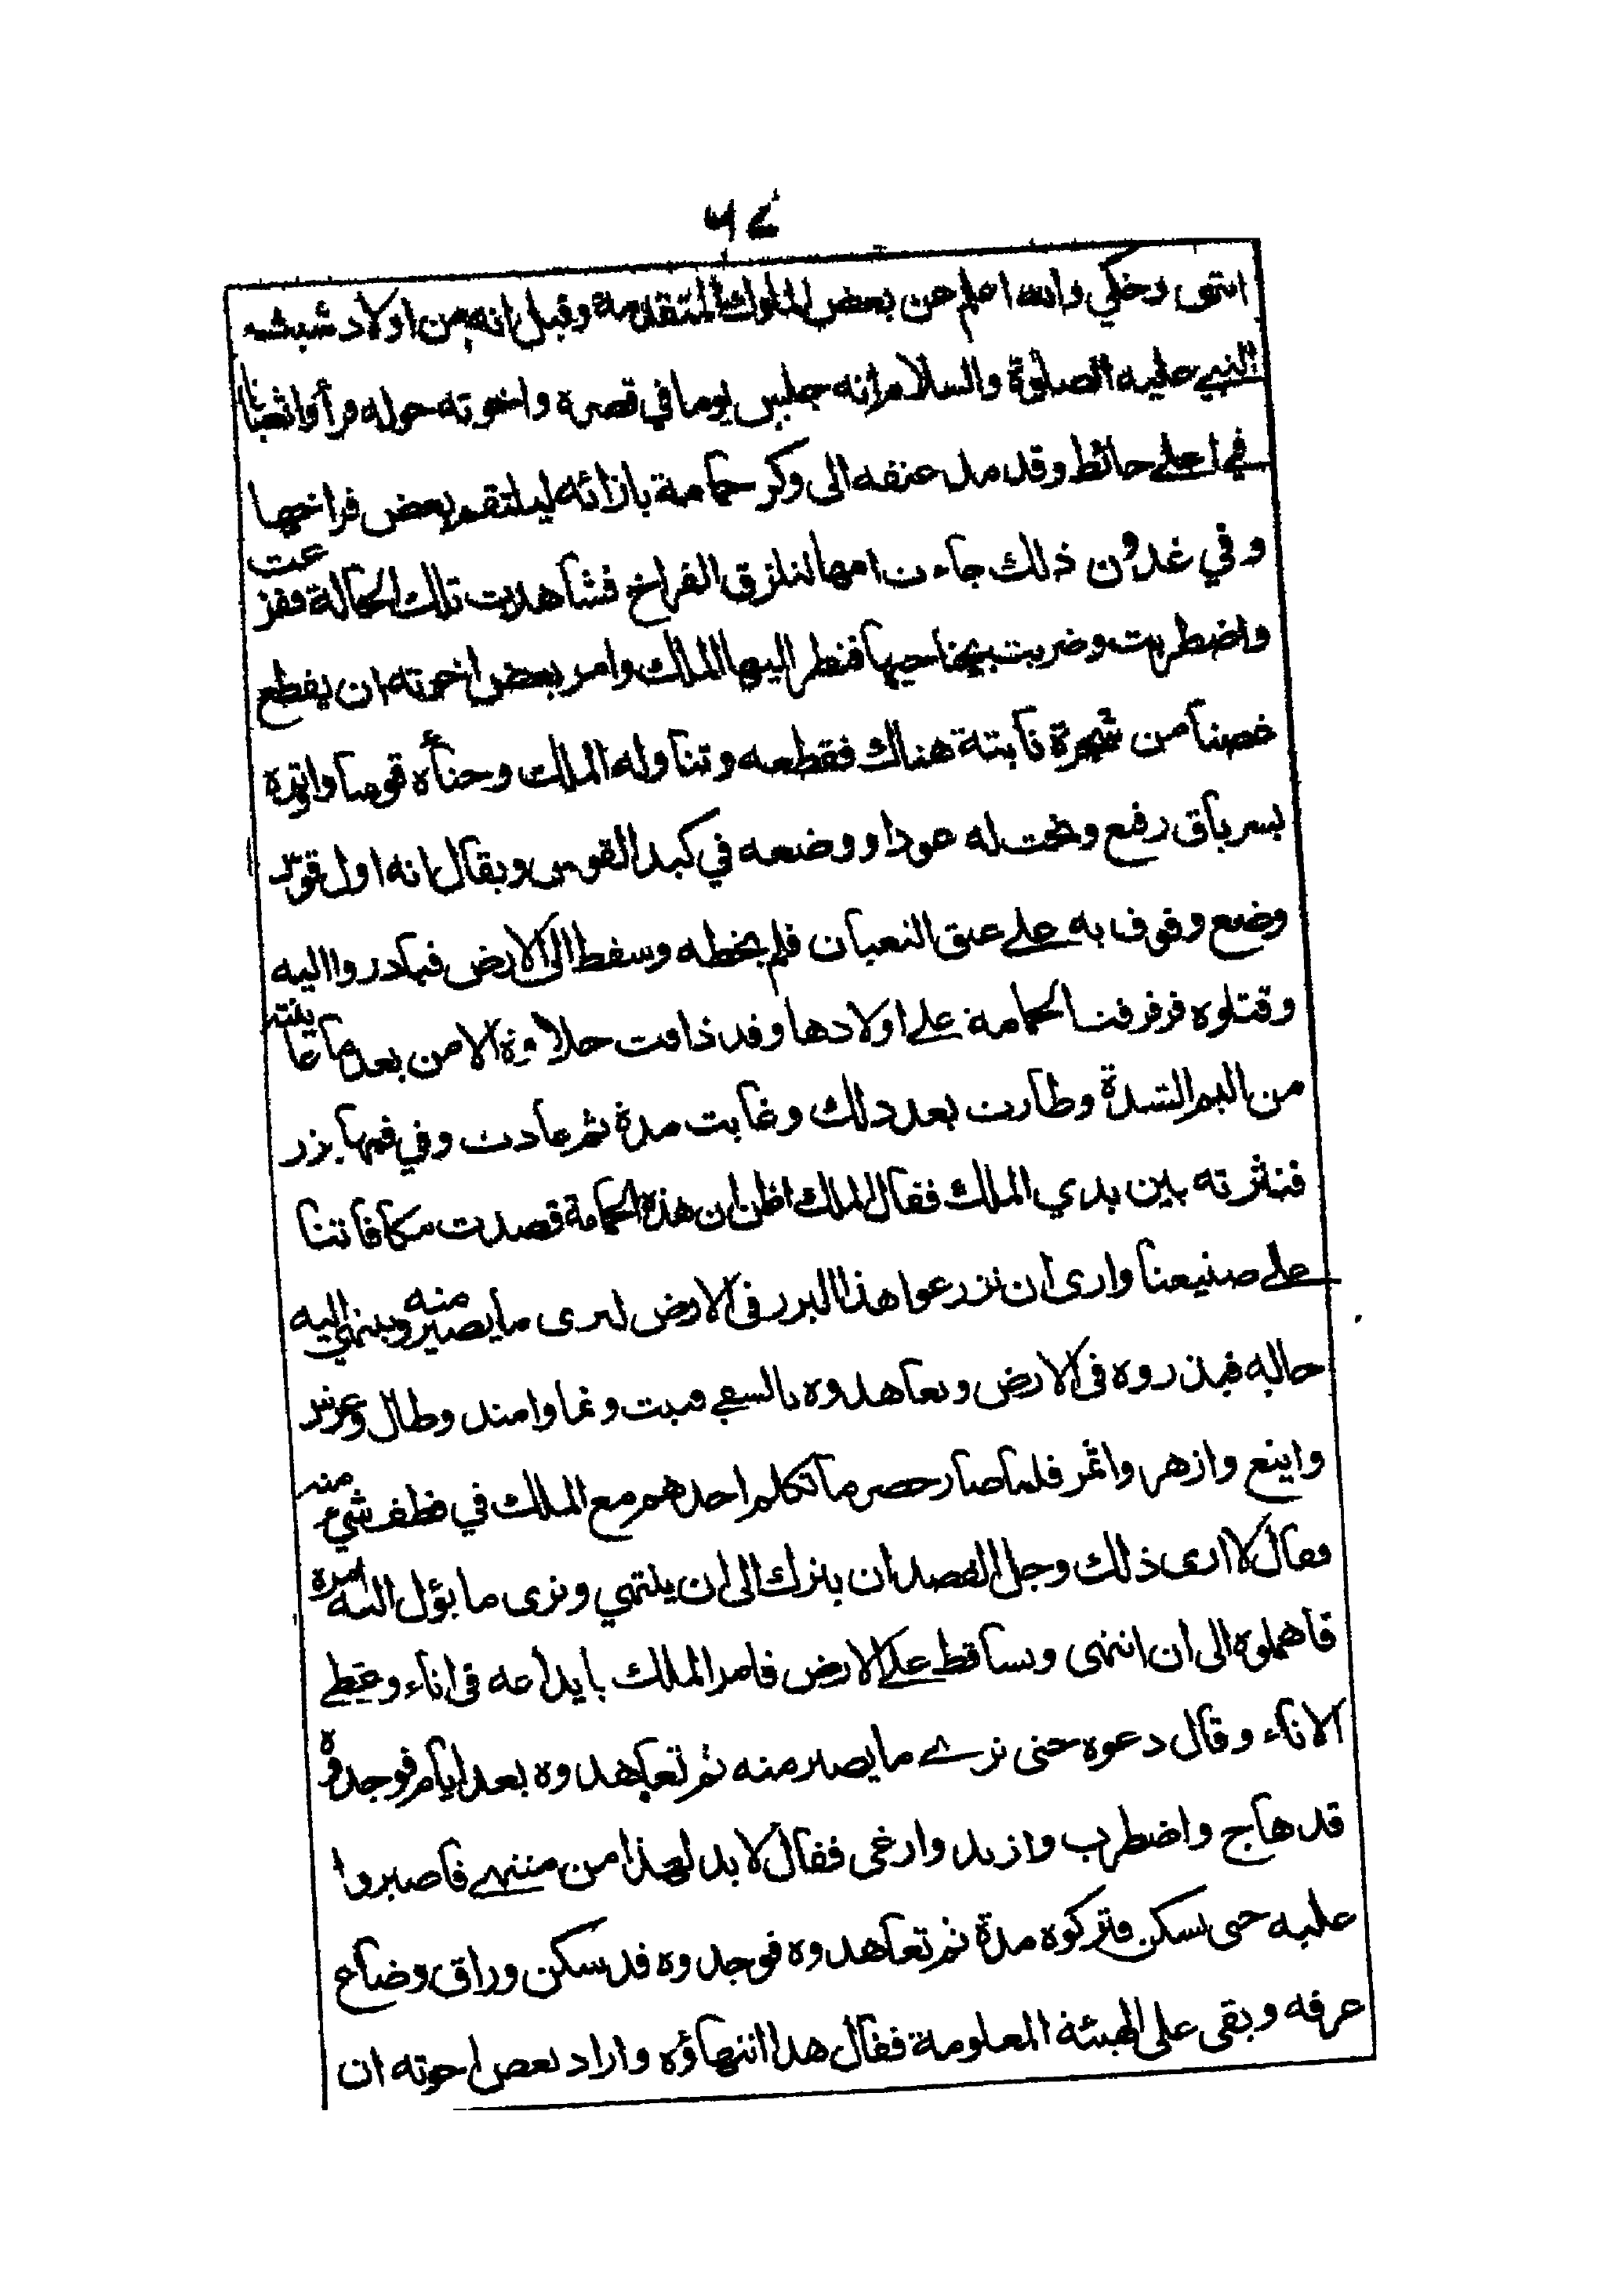 ٦٤
انتهى وحكي والله اعلم عن بعض الملوك المتقدمة وقيل انه من اولاد شيث
النبي عليه الصلوة والسلام أنه جلس يوما في قصره واخوته حوله فرأوا ثعبانا
في اعلى حائط وقد مد عنقه الى وكر حمامة بازائه ليلتقم بعض فراخها
وفي غدون ذلك جاءت امها لتزق الفراخ فشاهدت تلك الحالة ففزعت
واضطربت وضربت بجناحيها فنظر اليها الملك وامر بعض اخوته ان يقطع
غصنا من شجرة نابتة هناك فقطعه وتناوله الملك وحناه قوسا واوتره
بسرياق رفيع ونحت له عودا ووضعه في كبد القوس ويقال انه اول قوس
وضع وفوق به على عنق الثعبان فلم يخطه وسقط الى الارض فبادروا اليه
وقتلوه فرفرفت الحمامة على اولادها وقد ذاقت حلاوة الامن بعد ما عاينته
من اليم الشدة وطارت بعد ذلك وغابت مدة ثم عادت وفي فمها بزر
فنثرته بين يدي الملك فقال الملك اظن ان هذه الحمامة قصدت مكافاتنا
على صنيعنا وارى ان تزرعوا هذا البزر في الارض لنرى ما يصير منه وينتهي اليه
حاله فبذروه في الارض وتعاهدوه بالسقي فنبت ونما وامتد وطال وعرش
واينع وازهر واثمر فلما صار حصرما تكلم احدهم مع الملك في قطف شيء منه
فقال لا ارى ذلك وجل القصد ان يترك الى ان ينتهي ونرى ما يؤل اليه امره
فاهملوه الى ان انتهى وتساقط على الارض فامر الملك بايداعه في اناء وغطى
الاناء وقال دعوه حتى نرى ما يصير منه ثم تعاهدوه بعد ايام فوجدوه
قد هاج واضطرب وازبد وارغى فقال لا بد لهذا من منتهى فاصبروا
عليه حتى يسكن فتركوه مدة ثم تعاهدوه فوجدوه قد سكن وراق وضاع
عرفه وبقى على الهيئة المعلومة فقال هذا انتهاؤه واراد بعض اخوته ان